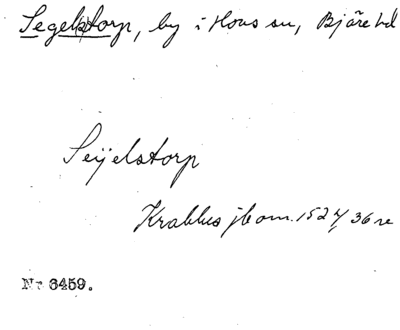 Segelstorp, by i Hovs sn, Bjäre hd
Seijelstorp
Krabbes jbom. 1524/36
Nr 6459.